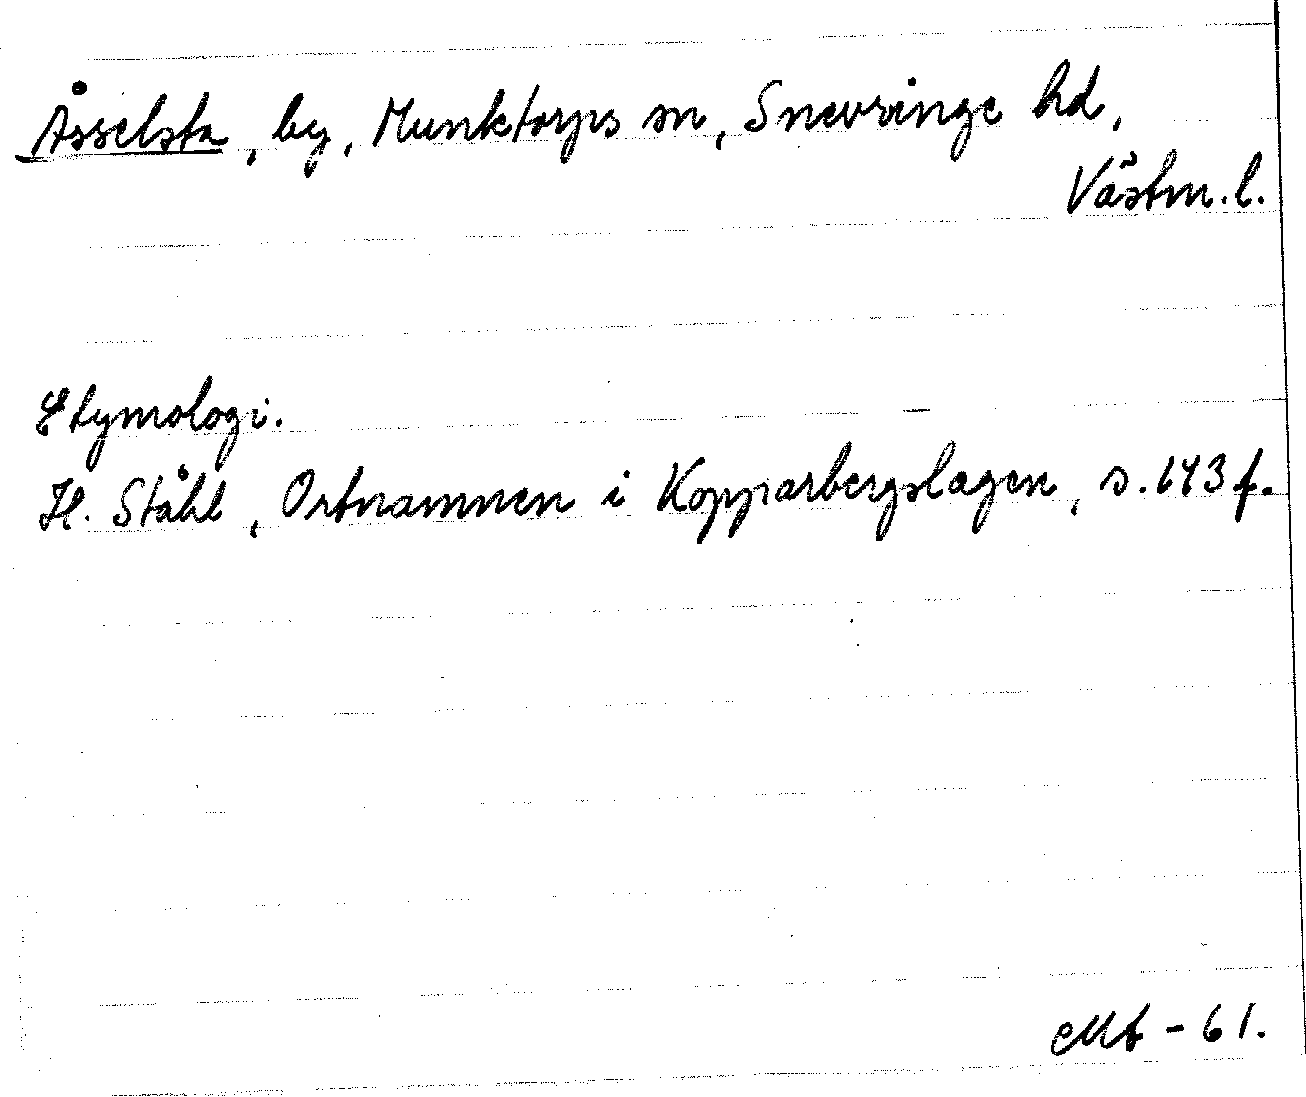 Åsselsta, by, Munktorps sn, Snevringe hd,
Västm. l.
Etymologi.
H. Ståhl, Ortnamnen i Kopparbergslagen, s. 143 f.
-61.